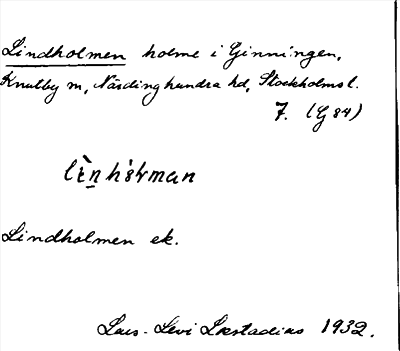 Lindholmen holme i Ginningen,
Knutby sn, Närdinghundra hd, Stockholms l.
7. (G 84)
Lindholmen ek.
Lars-Levi Læstadius 1932.